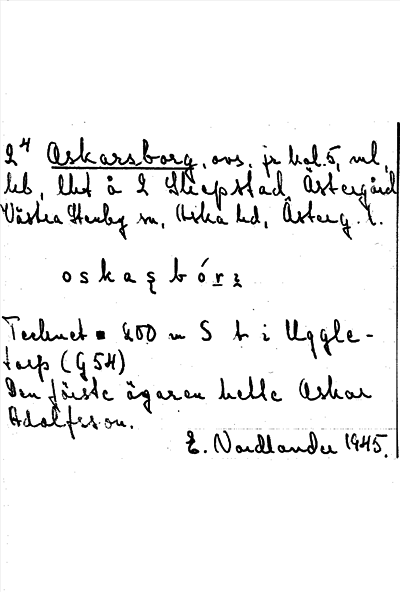 2⁴ Oskarsborg, avs. jr kol. 5, ml,
hb, lht å 2 Skepstad, Östergård
Västra Stenby sn, Aska hd, Österg. l.
oskaʂbórʐ
Tecknet ■ 400 m S t i Uggle-
torp (G 54)
Den förste ägaren hette Oskar
Adolfsson.
E. Nordlander 1945.